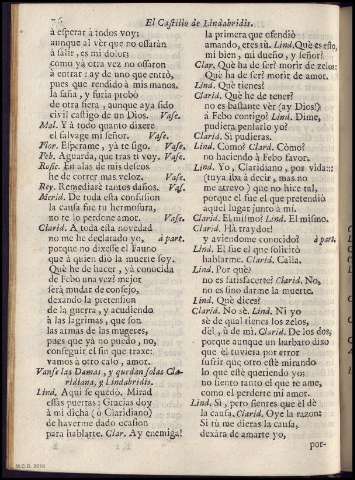 76 El Castillo de Lindabridis.
à esperar à todos voy;
aunque al vèr que no ossaràn
à salir, es mi dolor;
como ya otra vez no ossaron
à entrar: ay de uno que entrò,
pues que rendido à mis manos.
la saña, y furia probò
de otra fiera, aunque aya sido
civil castigo de un Dios. Vase.
Mal. Y à todo quanto dixere
el salvage mi señor. Vase.
Flor. Esperame, yà te sigo. Vase.
Feb. Aguarda, que tras ti voy. Vase.
Rosic. En alas de mis deseos
he de correr mas veloz. Vase.
Rey. Remediarè tantos daños. Vas.
Merid. De toda esta confusion
la causa fue tu hermosura,
no te lo perdone amor. Vase.
Clarid. A toda esta novedad
no me he declarado yo, à part.
porque no dixesse el Fauno
que à quien diò la muerte soy.
Què he de hacer, yà conocida
de Febo una vez? mejor
serà mudar de consejo,
dexando la pretension
de la guerra, y acudiendo
à las lagrimas, que son
las armas de las mugeres,
pues que yà no puedo, no,
conseguir el fin que traxe:
vamos à otro cabo, amor.
Vanse las Damas, y quedan solas Cla-
ridiana, y Lindabridis.
Lind. Aqui se quedò. Mirad
essas puertas: Gracias doy
à mi dicha (ò Claridiano)
de haverme dado ocasion
para hablarte. Clar. Ay enemiga!
la primera que ofendiò
amando, eres tù. Lind. Què es esto,
mi bien, mi dueño, y señor?
Clar. Què ha de ser? morir de zelos:
Què ha de ser? morir de amor.
Lind. Què tienes?
Clarid. Què he de tener?
no es bastante vèr (ay Dios!)
à Febo contigo? Lind. Dime,
pudiera penlarlo yo?
Clarid. Si pudieras.
Lind. Como? Clarid. Còmo?
no haciendo à Febo favor.
Lind. Yo, Claridiano, por vida::
(tuya iba à decir, mas no
me atrevo) que no hice tal,
porque el fue el que pretendiò
aquel lugar junto à mi.
Clarid. El mismo? Lind. El mismo.
Clarid. Hà traydor!
Ly aviendome conocido? à part.
Lind. El fue el que solicitò
hablarme. Clarid. Calla.
Lind. Por què?
no es satisfacerte? Clarid. No,
no es sino darme la muerte.
Lind. Què dices?
Clarid. No sè. Lind. Ni yo
sè de qual tienes los zelos,
dèl, ù de mi. Clarid. De los dos,
porque aunque un barbaro diso
que èl tuviera por error
sufrir que otro estè mirando
lo que estè queriendo yo;
no siento tanto el que te ame,
como el perderte mi amor.
Lind. Si, pero sientes que èl dè
la causa. Clarid. Oye la razon:
Si tù me dieras la causa,
dexàra de amarte yo,
por-